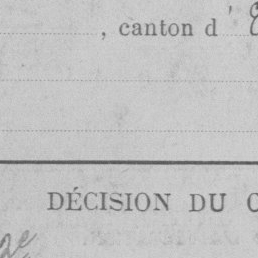 , canton d'
DÉCISION DU C